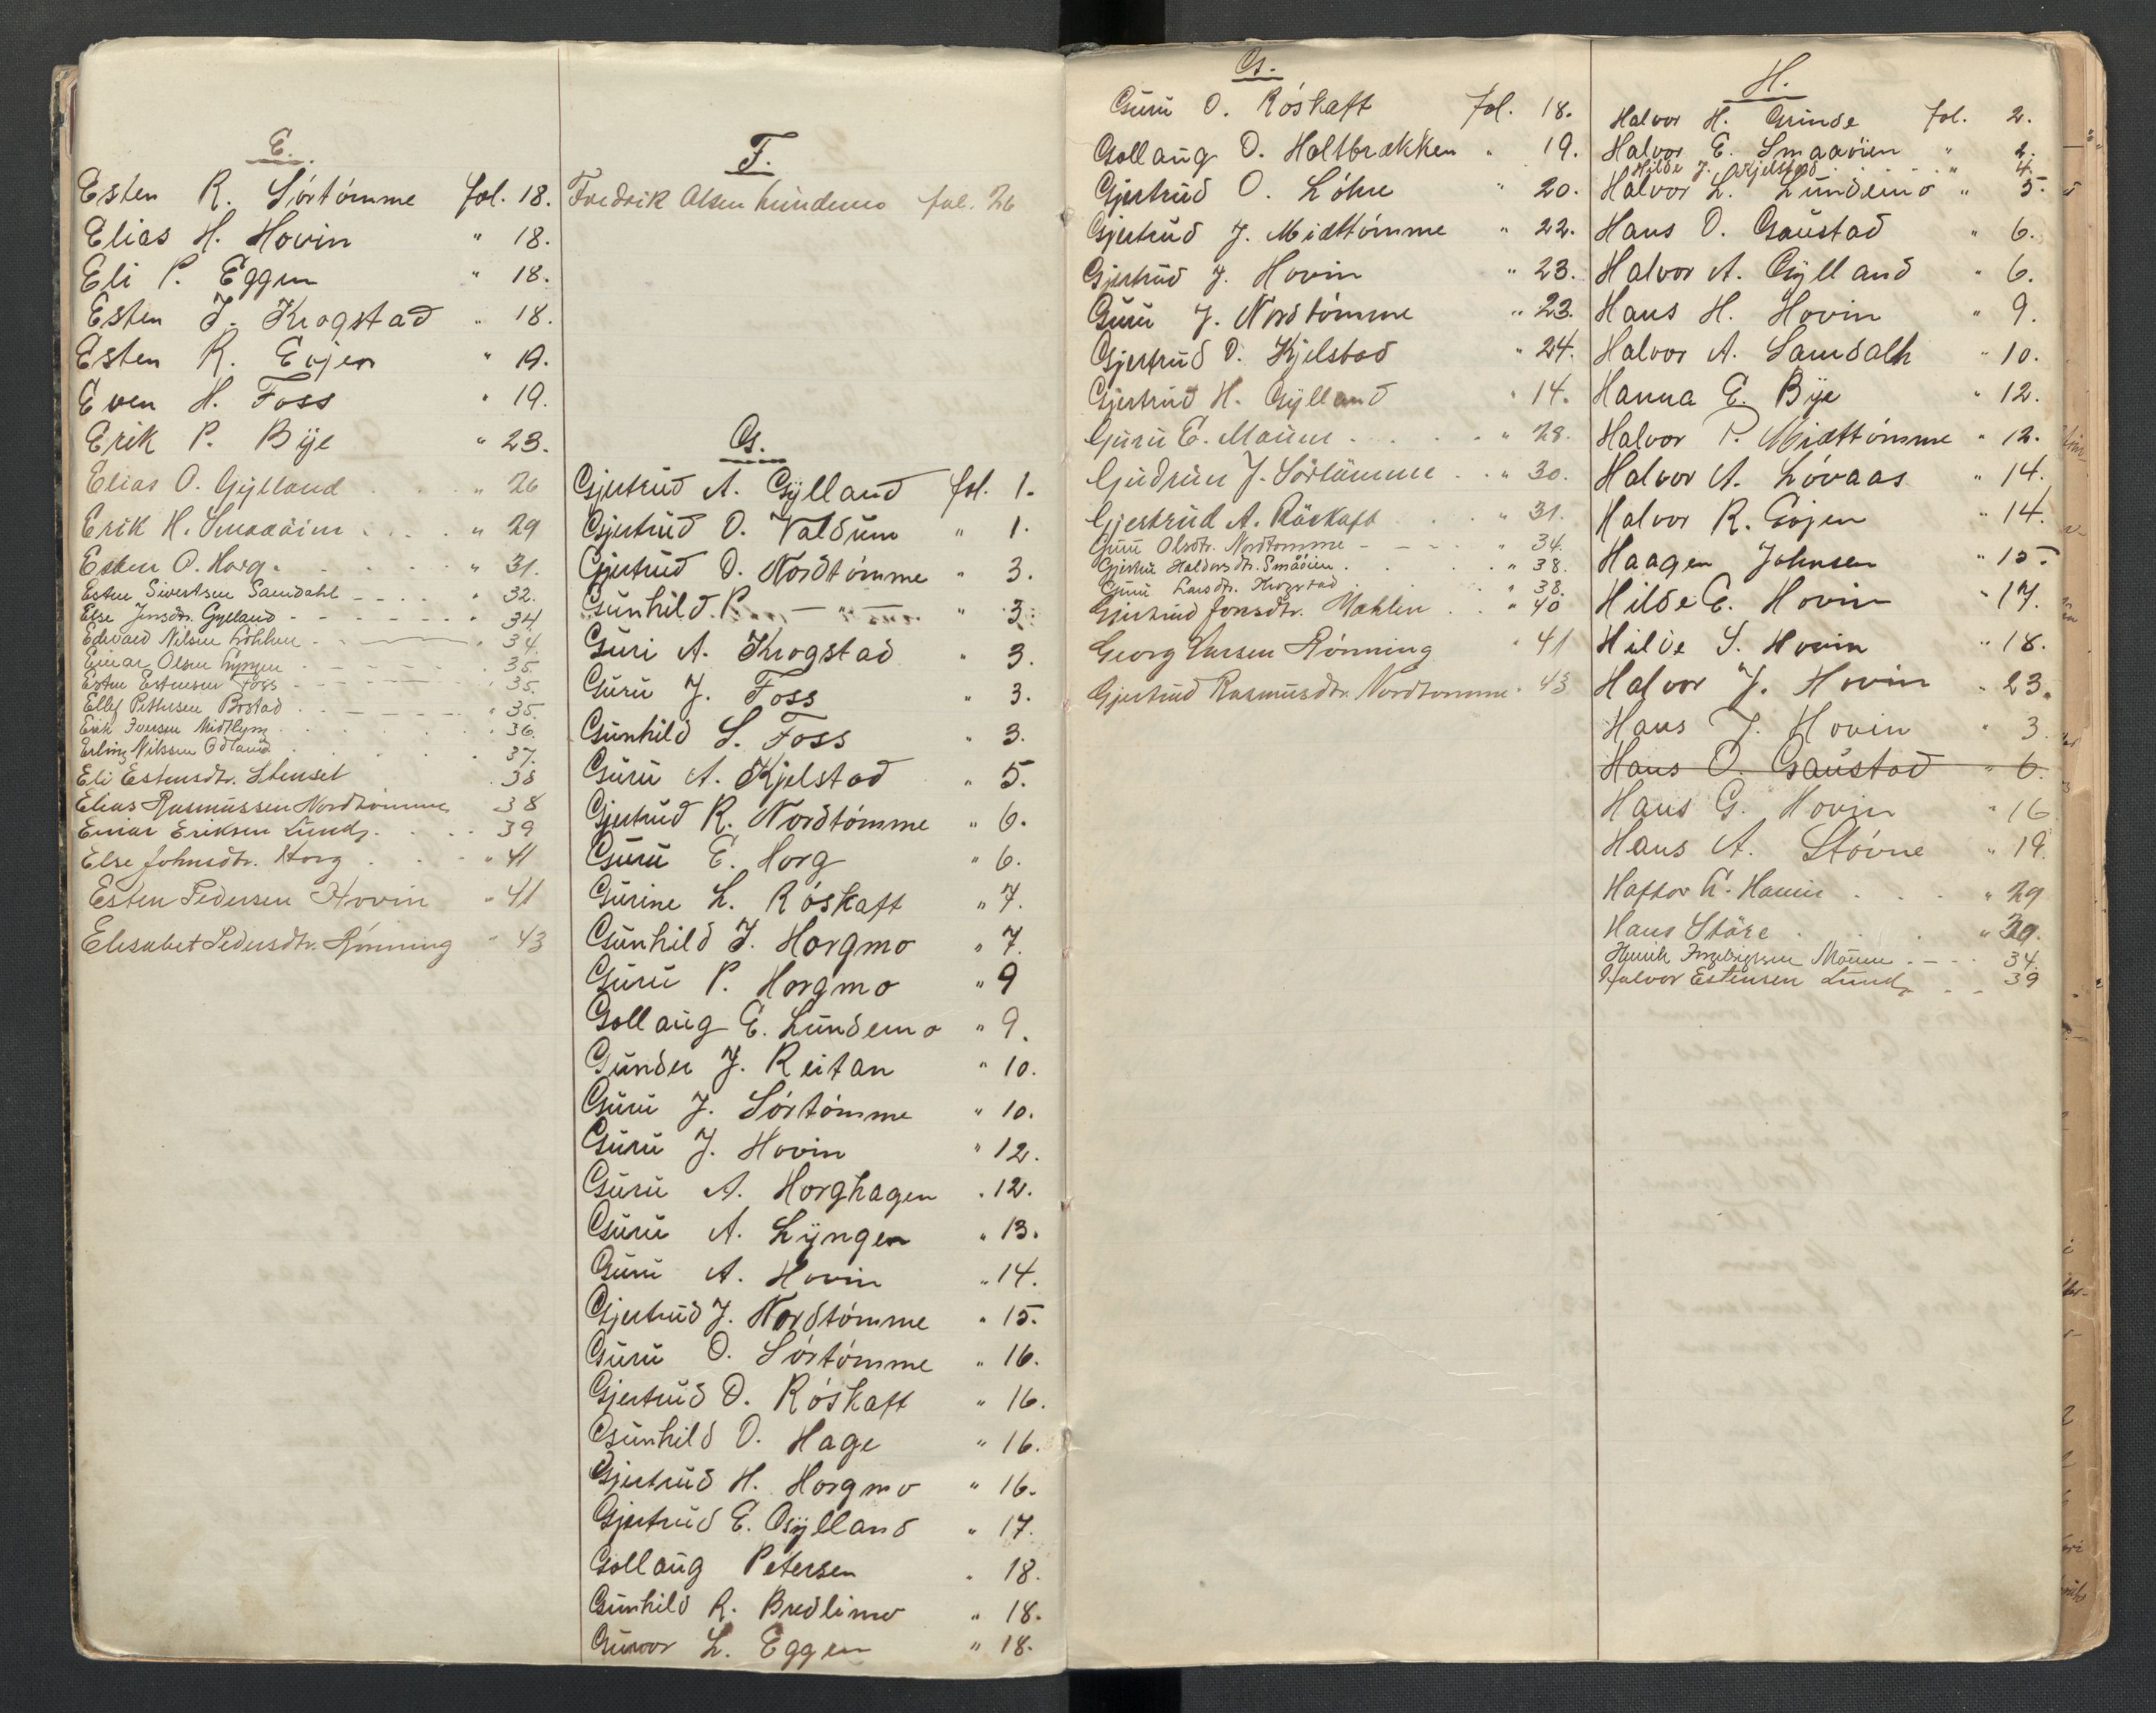 E.
Esten R. Sörtömme fol. 18.
Elias H. Hovin " 18.
Eli P. Eggen " 18.
Esten J. Krogstad " 18.
Esten R. Evjen " 19.
Even H. Foss " 19.
Erik P. Bÿe " 23.
Elias O. Gÿlland " 26
Erik H. Smaaöien " 29
Esten O. Horg " 31.
Esten Sivertsen Samdahl " 32.
Else Jensdtr. Gylland " 34
Edvard Nilsen " 34.
Einar Olsen Lyngen " 35.
Esten Estensen Foss " 35.
Ellef Pettersen " 35.
Erik Iversen Midtlyng " 36.
Erling Nilssen Ödland " 37.
Eli Estensdtr. Stenset " 38
Elias Rasmussen Nordtömme 38
Einar Eriksen Lund 39
Else Johnsdtr. Horg " 41
Esten Pedersen Hovin " 41
Elisabet Pedersdtr. Rönning " 43
F.
Fredrik Olsen Lundemo fol. 26
G.
Gjertrud A. Gÿlland fol. 1.
Gjertrud O. Valdum " 1.
Gjertrud O. Nordtömme " 3.
Gunhild P. — " — " 3.
Guri A. Krogstad " 3.
Guru J. Foss " 3.
Gunhild S. Foss " 3.
Guru A. Kjelstad " 5.
Gjertrud R. Nordtömme " 6.
Guru E. Horg " 6.
Gurine L. Röskaft " 7.
Gunhild J. Horgmo " 7.
Guru P. Horgmo " 9
Gollaug E. Lundemo " 9.
Gunder J. Reitan " 10.
Guru J. Sörtömme " 10.
Guru J. Hovin " 12.
Guru A. Horghagen " 12.
Guru A. Lÿngen " 13.
Guru A. Hovin " 14.
Gjertrud J. Nordtömme " 15.
Guru O. Sörtömme " 16.
Gjertrud O. Röskaft " 16.
Gunhild O. Hage " 16.
Gjertrud H. Horgmo " 16.
Gjertrud E. Gÿlland " 17.
Gollaug Petersen " 18.
Gunhild R. Bredlimo " 18.
Gunvor L. Eggen " 18.
G.
Guru O. Röskaft fol. 18.
Gollaug O. Holtbrækken " 19.
Gjertrud O. Löhre " 20.
Gjertrud J. Midttömme " 22.
Gjertrud J. Hovin " 23.
Guru J. Nordtömme " 23.
Gjertrud O. Kjelstad " 24.
Gjertrud H. Gÿlland " 14.
Guru E. Moum " 28.
Gudrun J. Sörtömme " 30.
Gjertrud A. Röskaft " 31.
Guru Olsdtr. Nordtomme " 34.
Haldorsdtr. Småöien " 38.
Guru Larsdtr. Krogstad " 38.
Gjertrud Jonsdtr. Mæhlen " 40
Georg Larsen Rönning " 41
Gjertrud Rasmusdtr. Nordtomme " 43
H.
Halvor H. Grinde fol. 2.
Halvor E. Smaaöien " 2.
Hilde J. Kjelstad " 4.
Halvor L. Lundemo " 5.
Hans O. Gaustad " 6.
Halvor A. Gÿlland " 6.
Hans H. Hovin " 9.
Halvor A. Samdalh " 10.
Hanna E. Bÿe " 12.
Halvor P. Midttömme " 12.
Halvor A. Lövaas " 14.
Halvor R. Evjen " 14.
Haagen Johnsen " 15
Hilde E. Hovin " 17.
Hilde S. Hovin " 18.
Halvor J. Hovin " 23.
Hans J. Hovin " 3.
Hans O. Gaustad " 6.
Hans G. Hovin " 16
Hans A. Stövne " 19.
Haftor L. " 29
Hans Störe " 30.
Henrik Ingebrigtsen Moum 34.
Halvor Estensen Lund 39